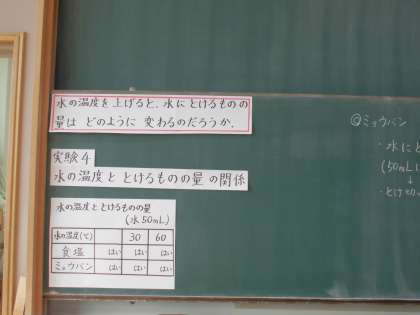 水の温度を上げると、水にとけるものの
量は どのように 変わるのだろうか.
実験4
水の温度と とけるものの量 の関係
水の温度ととけるものの量
(水50mL)
水の温度(℃) 30 60
食塩 はい はい はい
ミョウバン はい はい はい
◎ミョウバン
・水にと
(50mL
↓
・とけ